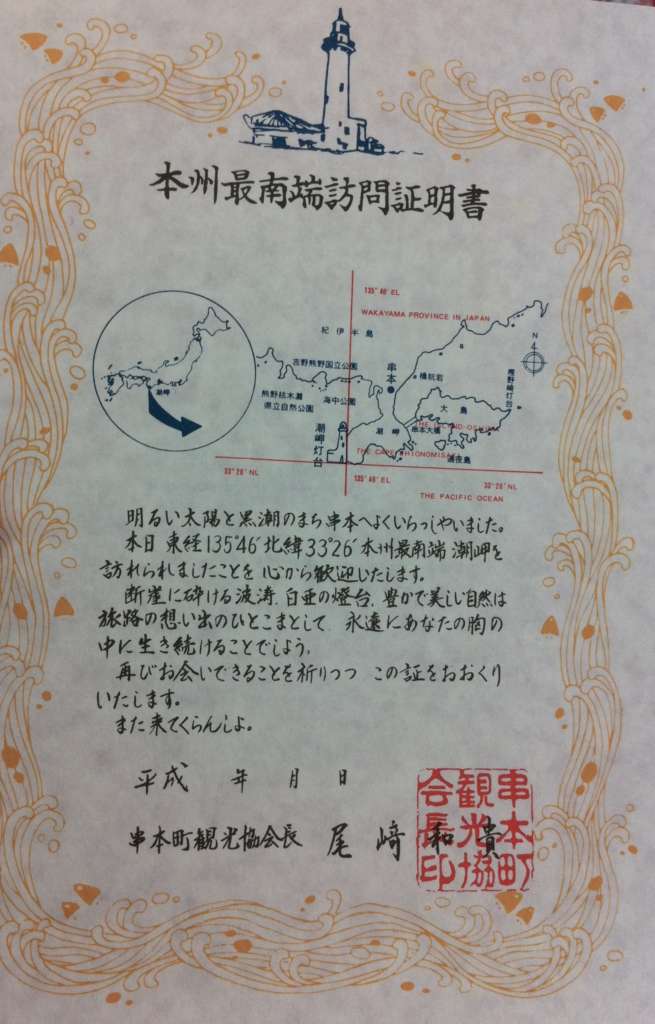 本州最南端訪問証明書
135°46′EL
WAKAYAMA PROVINCE IN JAPAN
紀伊半島
N
吉野熊野国立公園
串本
橋杭岩
樫野崎灯台
熊野枯木灘
県立自然公園
海中公園
大島
潮岬
THE ISLAND-OSHIMA
潮岬
串本大橋
潮岬灯台
THE CAPE SHIONOMISAKI
通夜島
33°26′NL
135°46′EL
33°26′NL
THE PACIFIC OCEAN
明るい太陽と黒潮のまち串本へよくいらっしゃいました。
本日 東経135°46′北緯33°26′本州最南端 潮岬を
訪れられましたことを 心から歓迎いたします。
断崖に砕ける波涛、白亜の燈台、豊かで美しい自然は
旅路の想い出のひとこまとして 永遠にあなたの胸の
中に生き続けることでしょう。
再びお会いできることを祈りつつ この証をおおくり
いたします。
また来てくらんしよ。
平成 年 月 日
串本町観光協会長 尾﨑和貴
串本町観光協会長印